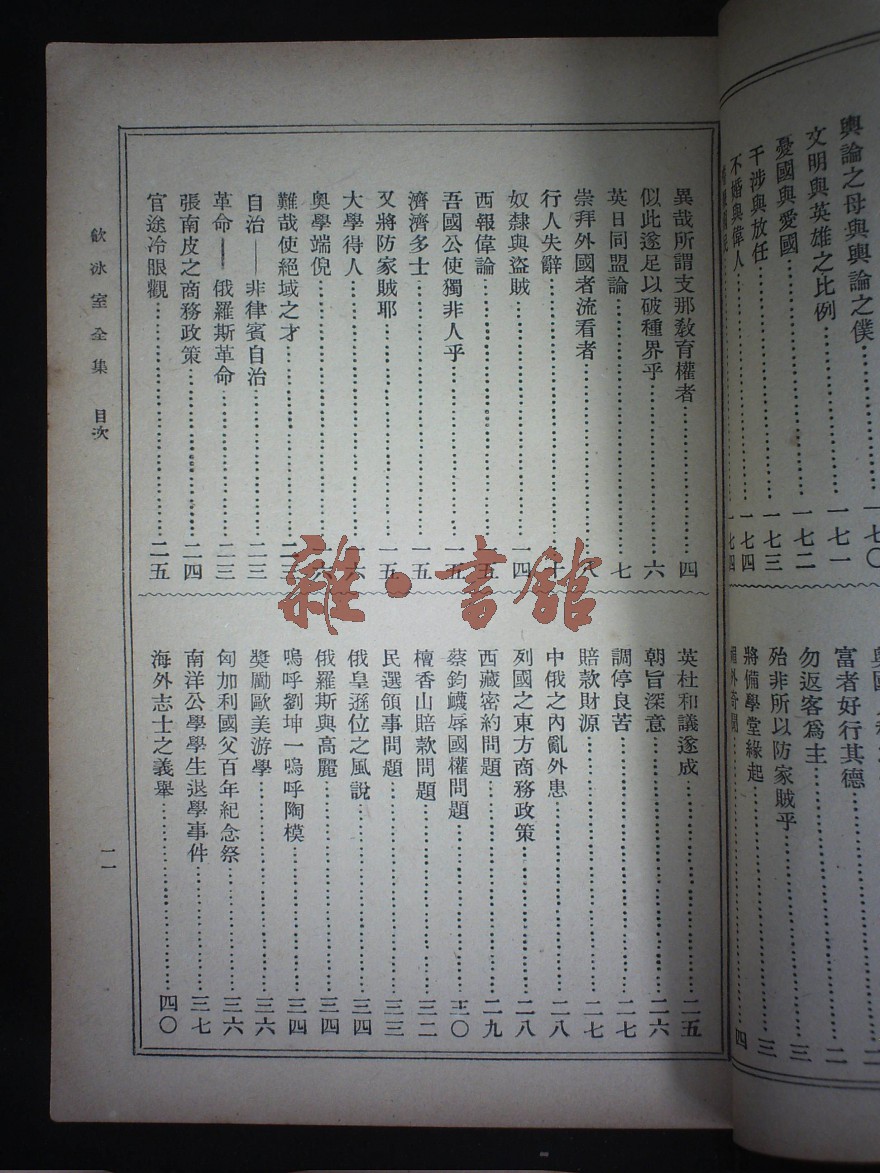 輿論之母與輿論之僕……一七〇
文明與英雄之比例……一七一
憂國與愛國……一七二
干涉與放任……一七三
不婚與偉人……一七四
富者好行其德……二
勿返客爲主……三
殆非所以防家賊乎……三
將備學堂緣起……四
異哉所謂支那敎育權者……四
似此遂足以破種界乎……六
英日同盟論……七
崇拜外國者流看者……八
行人失辭……十
奴隸與盜賊……一四
西報偉論……一五
吾國公使獨非人乎……一五
濟濟多士……一五
又將防家賊耶……一五
大學得人……一六
奧學端倪……一六
難哉使絕域之才……二三
自治——非律賓自治……二三
革命——俄羅斯革命……二三
張南皮之商務政策……二四
官途冷眼觀……二五
英杜和議遂成……二五
朝旨深意……二六
調停良苦……二七
賠款財源……二七
中俄之內亂外患……二八
列國之東方商務政策……二八
西藏密約問題……二九
蔡鈞衊辱國權問題……三〇
檀香山賠款問題……三二
民選領事問題……三三
俄皇遜位之風說……三四
俄羅斯與高麗……三四
嗚呼劉坤一嗚呼陶模……三四
獎勵歐美游學……三六
匈加利國父百年紀念祭……三六
南洋公學學生退學事件……三七
海外志士之義舉……四〇
飲冰室全集 目次
一一
雜·書館